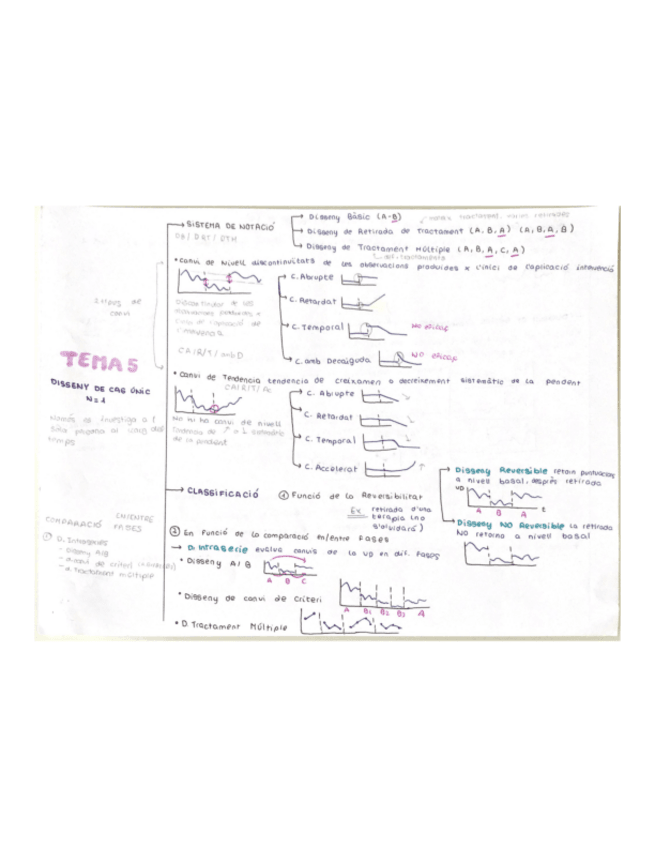 SISTEMA DE NOTACIÓ
DB / DRT / DTM
Disseny Bàsic (A-B)
Disseny de Retirada de Tractament (A, B, A) (A, B, A, B)
Disseny de Tractament Múltiple (A, B, A, C, A)
dif. tractaments
• Canvi de Nivell discontinuïtats de les observacions produides x l'inici de l'aplicació intervenció
C. Abrupte
C. Retardat
C. Temporal
NO eficaç
C. amb Decaiguda
NO eficaç
CA / R / T / amb D
TEMA 5
DISSENY DE CAS ÚNIC
N=1
Només es investiga a 1
sola persona al llarg del
temps
• Canvi de Tendencia tendencia de creixement o decreixement sistemàtic de la pendent
CA / R / T / Ac
No hi ha canvi de nivell
de la pendent
C. Abrupte
C. Retardat
C. Temporal
C. Accelerat
CLASSIFICACIÓ
① Funció de la Reversibilitat
Ex retirada d'una
teràpia (no
s'olvidarà)
Disseny Reversible retorn puntuacions
a nivell basal, després retirada
VD
A B A
t
Disseny NO Reversible la retirada
NO retorna a nivell basal
COMPARACIÓ EN/ENTRE
FASES
① D. Intraseries
- Disseny A/B
- d. canvi de criteri
- d. tractament múltiple
② En Funció de la comparació en/entre Fases
→ D. Intraserie evalua canvis de la VD en dif. Fases
• Disseny A/B
A B C
• Disseny de canvi de criteri
A B1 B2 B3 A
• D. Tractament Múltiple